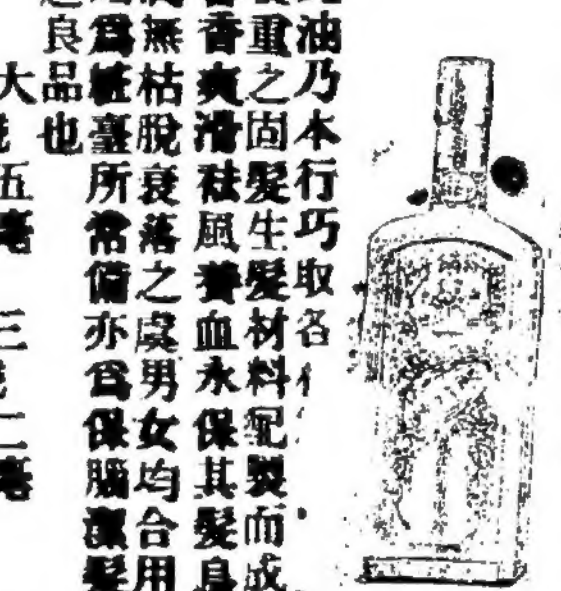 油乃本行巧取各
重之固髮生髮材料配製而成
香爽滑祛風養血永保其髮烏
無枯脫衰落之虞男女均合用
爲粧臺所常備亦爲保腦潔髮
良品也
大 五毫 三 二毫